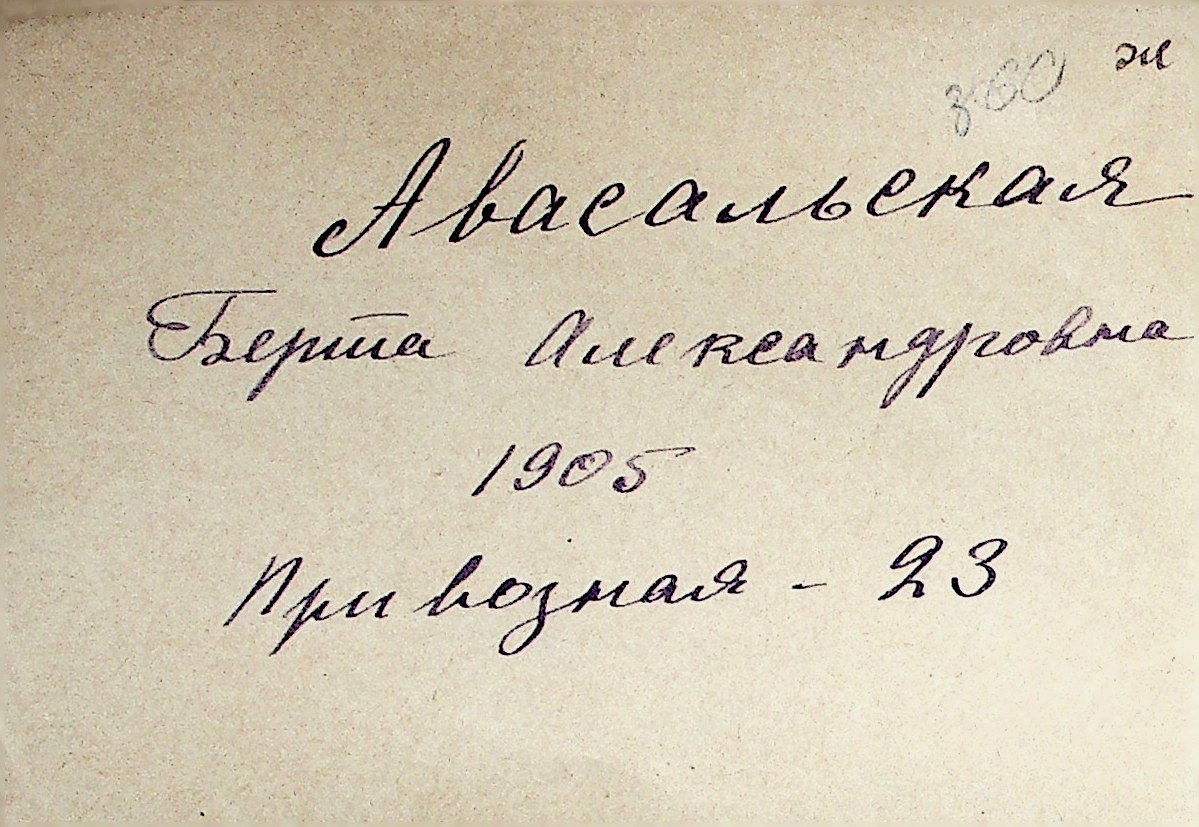 ж
Авасальская
Берта Александровна
1905
Привозная - 23